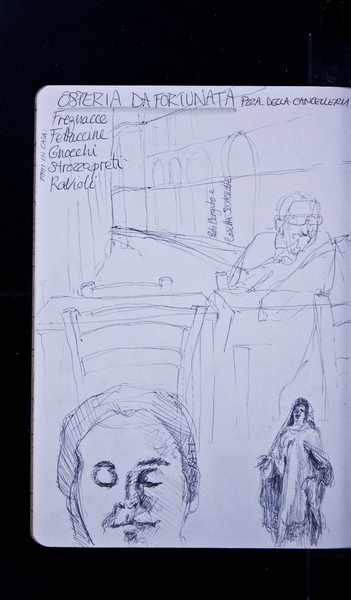 OSTERIA DA FORTUNATA PZZA. DELLA CANCELLERIA
Fregnacce
Fettuccine
Gnocchi
Strozzapreti
Ravioli
FATTI IN CASA